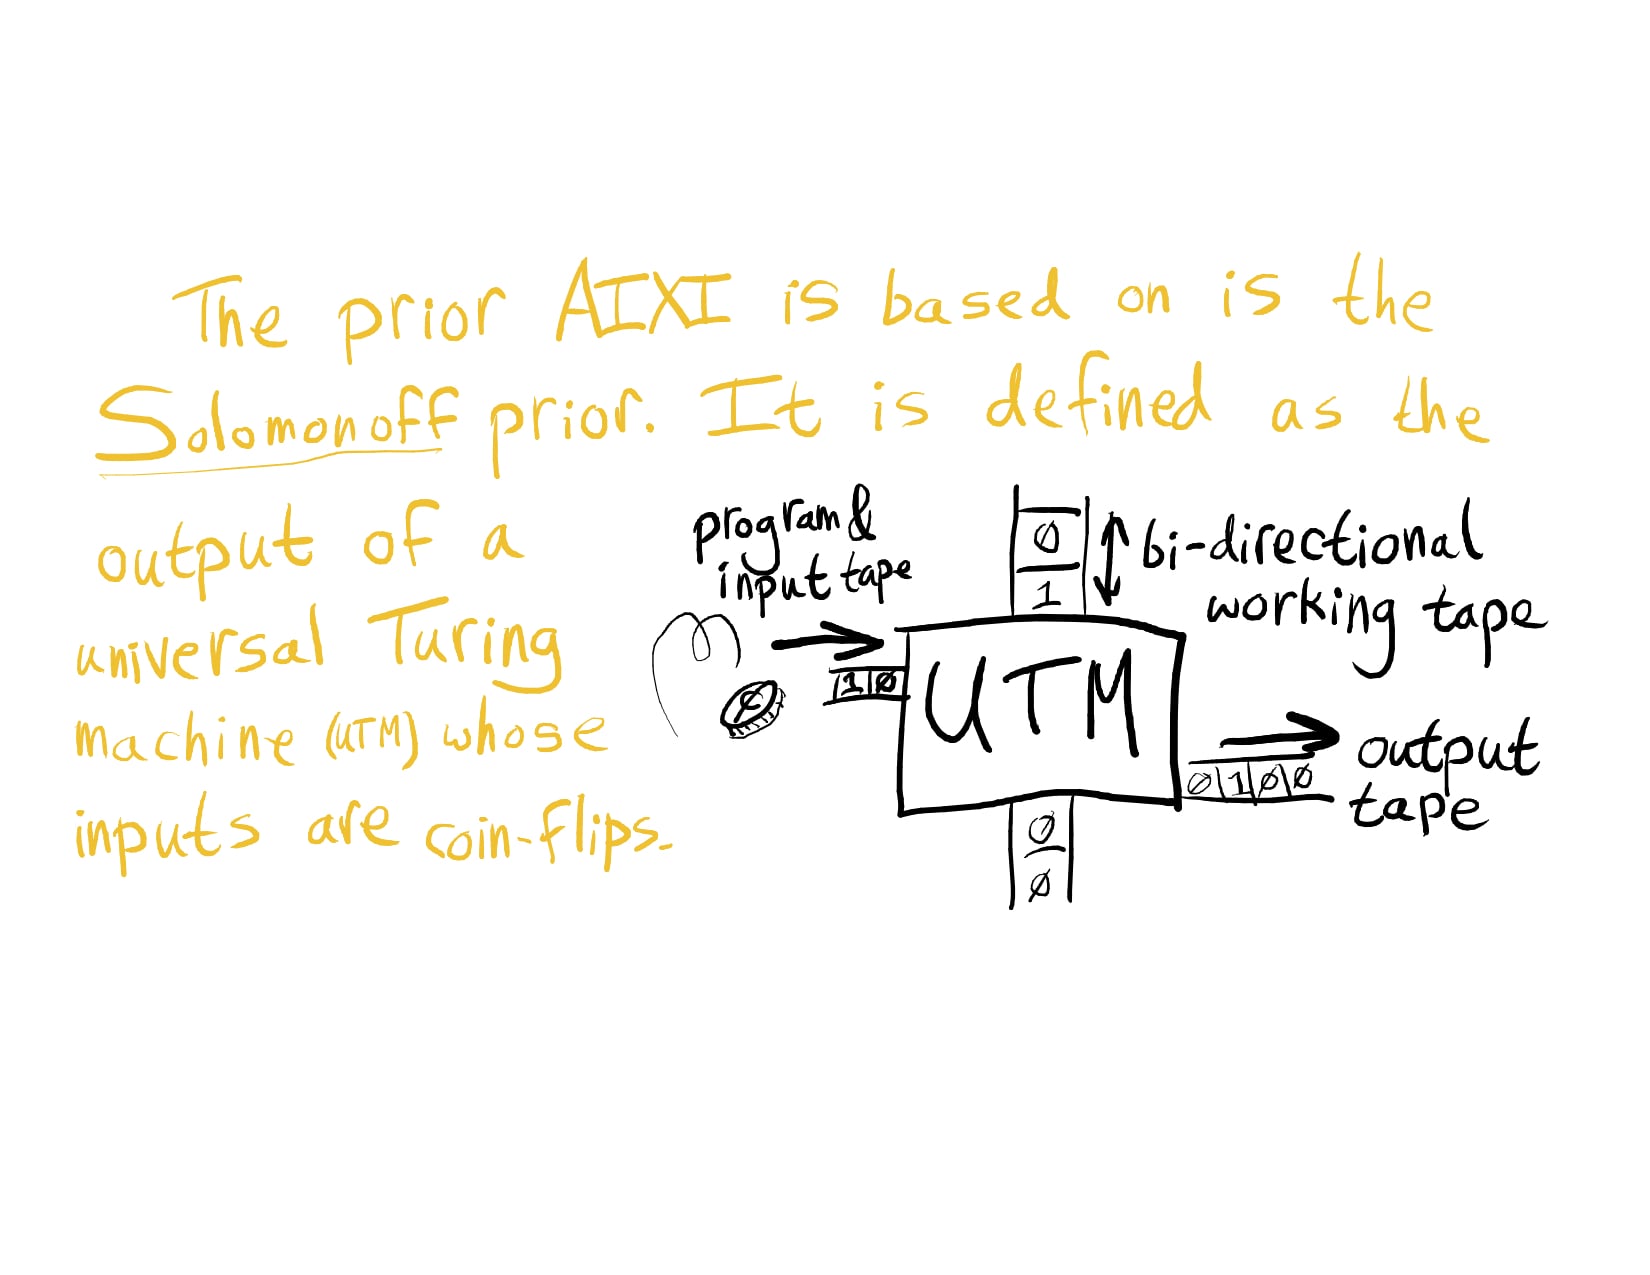 The prior AIXI is based on is the
Solomonoff prior. It is defined as the
output of a
universal Turing
machine (UTM) whose
inputs are coin-flips.
program &
input tape
1 0
0
1
bi-directional
working tape
UTM
0 1 0 0
output
tape
0
0